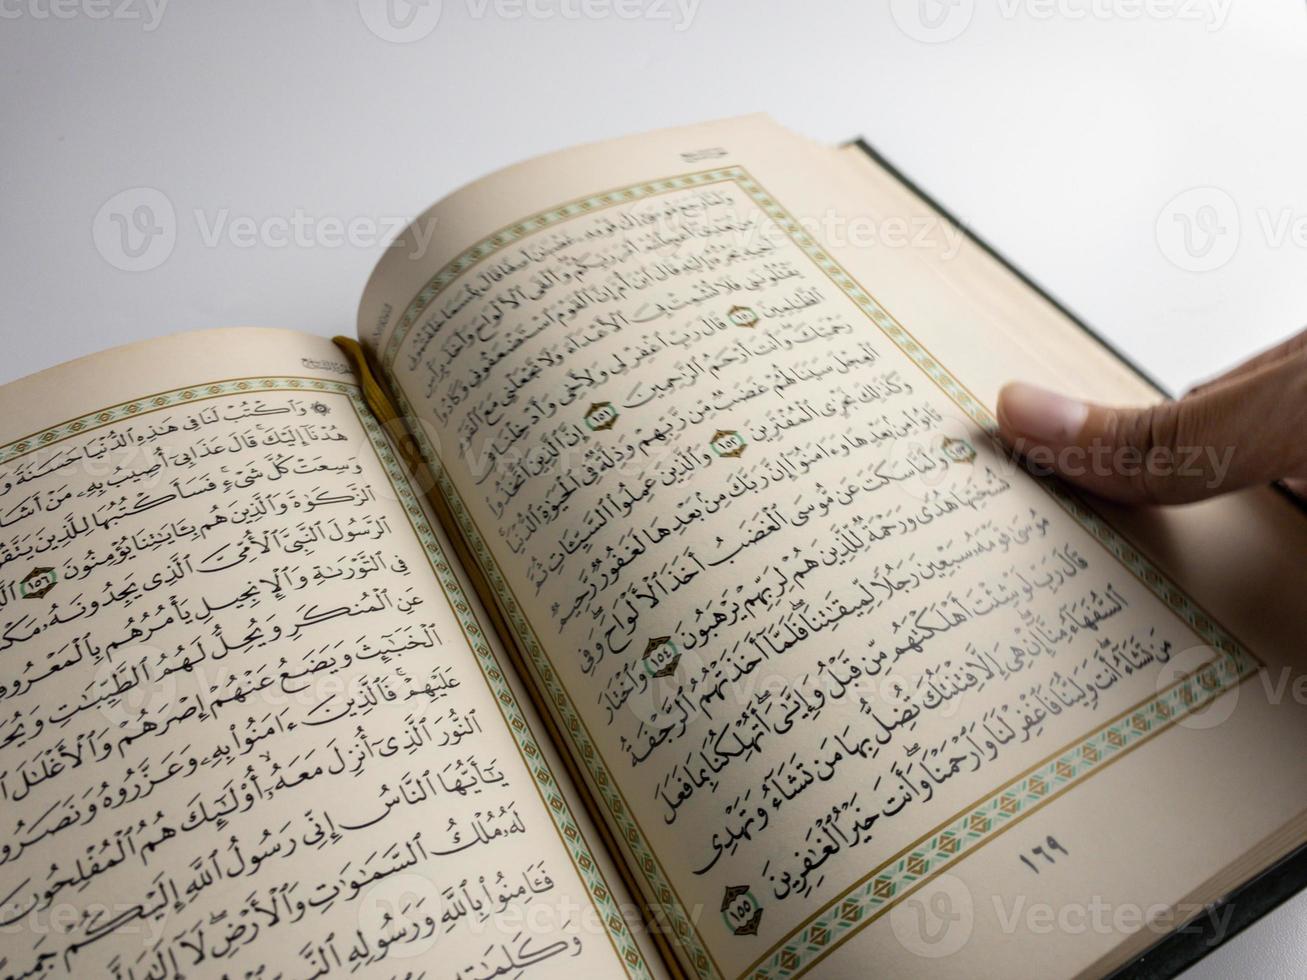 وَلَمَّا رَجَعَ مُوسَىٰٓ إِلَىٰ قَوْمِهِۦ غَضْبَٰنَ أَسِفًا قَالَ بِئْسَمَا خَلَفْتُمُونِى
مِنۢ بَعْدِىٓ أَعَجِلْتُمْ أَمْرَ رَبِّكُمْ وَأَلْقَى ٱلْأَلْوَاحَ وَأَخَذَ بِرَأْسِ
أَخِيهِ يَجُرُّهُۥٓ إِلَيْهِ قَالَ ٱبْنَ أُمَّ إِنَّ ٱلْقَوْمَ ٱسْتَضْعَفُونِى وَكَادُوا۟
يَقْتُلُونَنِى فَلَا تُشْمِتْ بِىَ ٱلْأَعْدَآءَ وَلَا تَجْعَلْنِى مَعَ ٱلْقَوْمِ
ٱلظَّٰلِمِينَ ١٥٠ قَالَ رَبِّ ٱغْفِرْ لِى وَلِأَخِى وَأَدْخِلْنَا فِى
رَحْمَتِكَ وَأَنتَ أَرْحَمُ ٱلرَّٰحِمِينَ ١٥١ إِنَّ ٱلَّذِينَ ٱتَّخَذُوا۟
ٱلْعِجْلَ سَيَنَالُهُمْ غَضَبٌ مِّن رَّبِّهِمْ وَذِلَّةٌ فِى ٱلْحَيَوٰةِ ٱلدُّنْيَا
وَكَذَٰلِكَ نَجْزِى ٱلْمُفْتَرِينَ ١٥٢ وَٱلَّذِينَ عَمِلُوا۟ ٱلسَّيِّـَٔاتِ ثُمَّ
تَابُوا۟ مِنۢ بَعْدِهَا وَءَامَنُوٓا۟ إِنَّ رَبَّكَ مِنۢ بَعْدِهَا لَغَفُورٌ رَّحِيمٌ
١٥٣ وَلَمَّا سَكَتَ عَن مُّوسَى ٱلْغَضَبُ أَخَذَ ٱلْأَلْوَاحَ وَفِى
نُسْخَتِهَا هُدًى وَرَحْمَةٌ لِّلَّذِينَ هُمْ لِرَبِّهِمْ يَرْهَبُونَ ١٥٤ وَٱخْتَارَ
مُوسَىٰ قَوْمَهُۥ سَبْعِينَ رَجُلًا لِّمِيقَٰتِنَا فَلَمَّآ أَخَذَتْهُمُ ٱلرَّجْفَةُ
قَالَ رَبِّ لَوْ شِئْتَ أَهْلَكْتَهُم مِّن قَبْلُ وَإِيَّٰىَ أَتُهْلِكُنَا بِمَا فَعَلَ
ٱلسُّفَهَآءُ مِنَّآ إِنْ هِىَ إِلَّا فِتْنَتُكَ تُضِلُّ بِهَا مَن تَشَآءُ وَتَهْدِى
مَن تَشَآءُ أَنتَ وَلِيُّنَا فَٱغْفِرْ لَنَا وَٱرْحَمْنَا وَأَنتَ خَيْرُ ٱلْغَٰفِرِينَ ١٥٥
١٦٩
۞ وَٱكْتُبْ لَنَا فِى هَٰذِهِ ٱلدُّنْيَا حَسَنَةً
هُدْنَآ إِلَيْكَ قَالَ عَذَابِىٓ أُصِيبُ بِهِۦ مَنْ أَشَآءُ
وَسِعَتْ كُلَّ شَىْءٍ فَسَأَكْتُبُهَا لِلَّذِينَ
ٱلزَّكَوٰةَ وَٱلَّذِينَ هُم بِـَٔايَٰتِنَا يُؤْمِنُونَ ١٥٦
ٱلرَّسُولَ ٱلنَّبِىَّ ٱلْأُمِّىَّ ٱلَّذِى يَجِدُونَهُۥ
فِى ٱلتَّوْرَىٰةِ وَٱلْإِنجِيلِ يَأْمُرُهُم بِٱلْمَعْرُوفِ
عَنِ ٱلْمُنكَرِ وَيُحِلُّ لَهُمُ ٱلطَّيِّبَٰتِ
ٱلْخَبَٰٓئِثَ وَيَضَعُ عَنْهُمْ إِصْرَهُمْ وَٱلْأَغْلَٰلَ
عَلَيْهِمْ فَٱلَّذِينَ ءَامَنُوا۟ بِهِۦ وَعَزَّرُوهُ وَنَصَرُوهُ
ٱلنُّورَ ٱلَّذِىٓ أُنزِلَ مَعَهُۥٓ أُو۟لَٰٓئِكَ هُمُ ٱلْمُفْلِحُونَ
يَٰٓأَيُّهَا ٱلنَّاسُ إِنِّى رَسُولُ ٱللَّهِ إِلَيْكُمْ جَمِيعًا
لَهُۥ مُلْكُ ٱلسَّمَٰوَٰتِ وَٱلْأَرْضِ لَآ إِلَٰهَ
فَـَٔامِنُوا۟ بِٱللَّهِ وَرَسُولِهِ
وَكَلِمَٰتِهِۦ